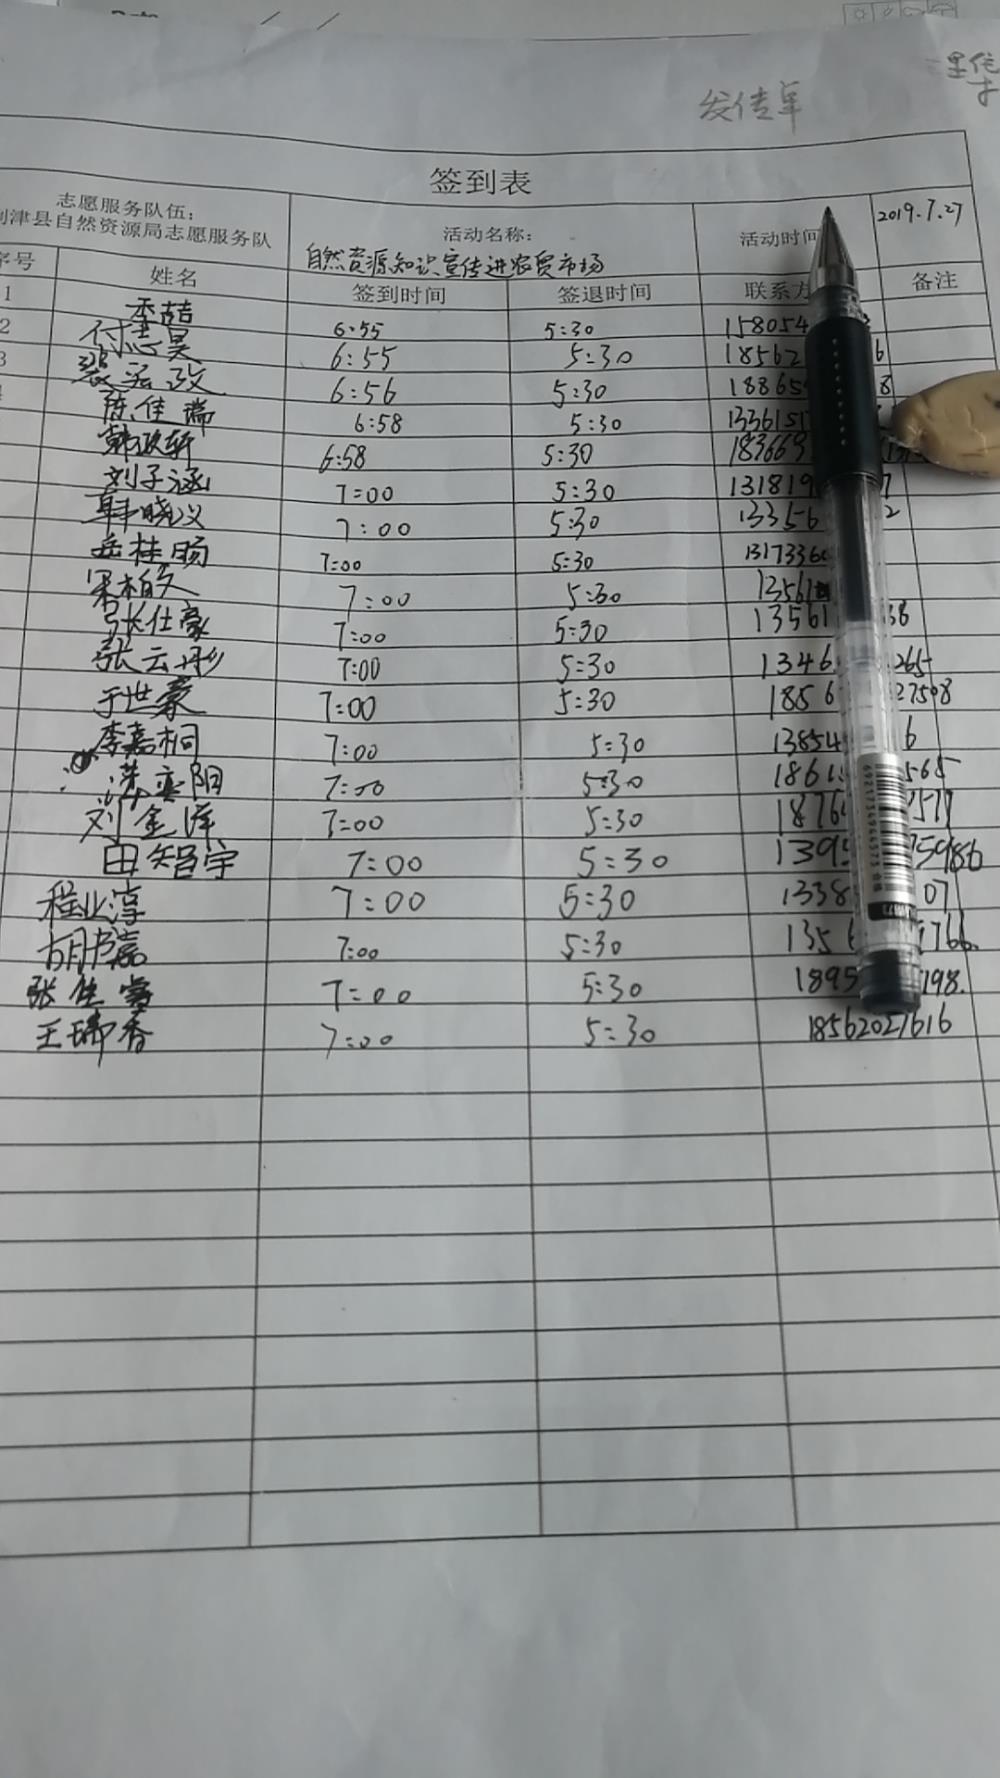 发传单
签到表
志愿服务队伍：
津县自然资源局志愿服务队
活动名称：
自然资源知识宣传进农贸市场
活动时间
2019.7.27
序号 姓名 签到时间 签退时间 联系方 备注
1 李喆 6:55 5:30 158054
2 付志昊 6:55 5:30 18562 6
3 6:56 5:30 18865 8
陈佳瑞 6:58 5:30 1336151
韩政轩 6:58 5:30 183663
刘子涵 7:00 5:30 131819 7
韩晓议 7:00 5:30 13356 2
岳桂旸 7:00 5:30 1317336
宋柏久 7:00 5:30 13561
张仕豪 7:00 5:30 13561 38
张云彤 7:00 5:30 1346 265
于世豪 7:00 5:30 1856 27598
李嘉桐 7:00 5:30 13854 6
洪奕阳 7:00 5:30 1861 565
刘金泽 7:00 5:30 1876 7577
田智宇 7:00 5:30 1395 75986
程业淳 7:00 5:30 1338 07
胡书嘉 7:00 5:30 1356 1766.
张佳 7:00 5:30 1895 198.
王瑞香 7:00 5:30 18562027616
6921734966373